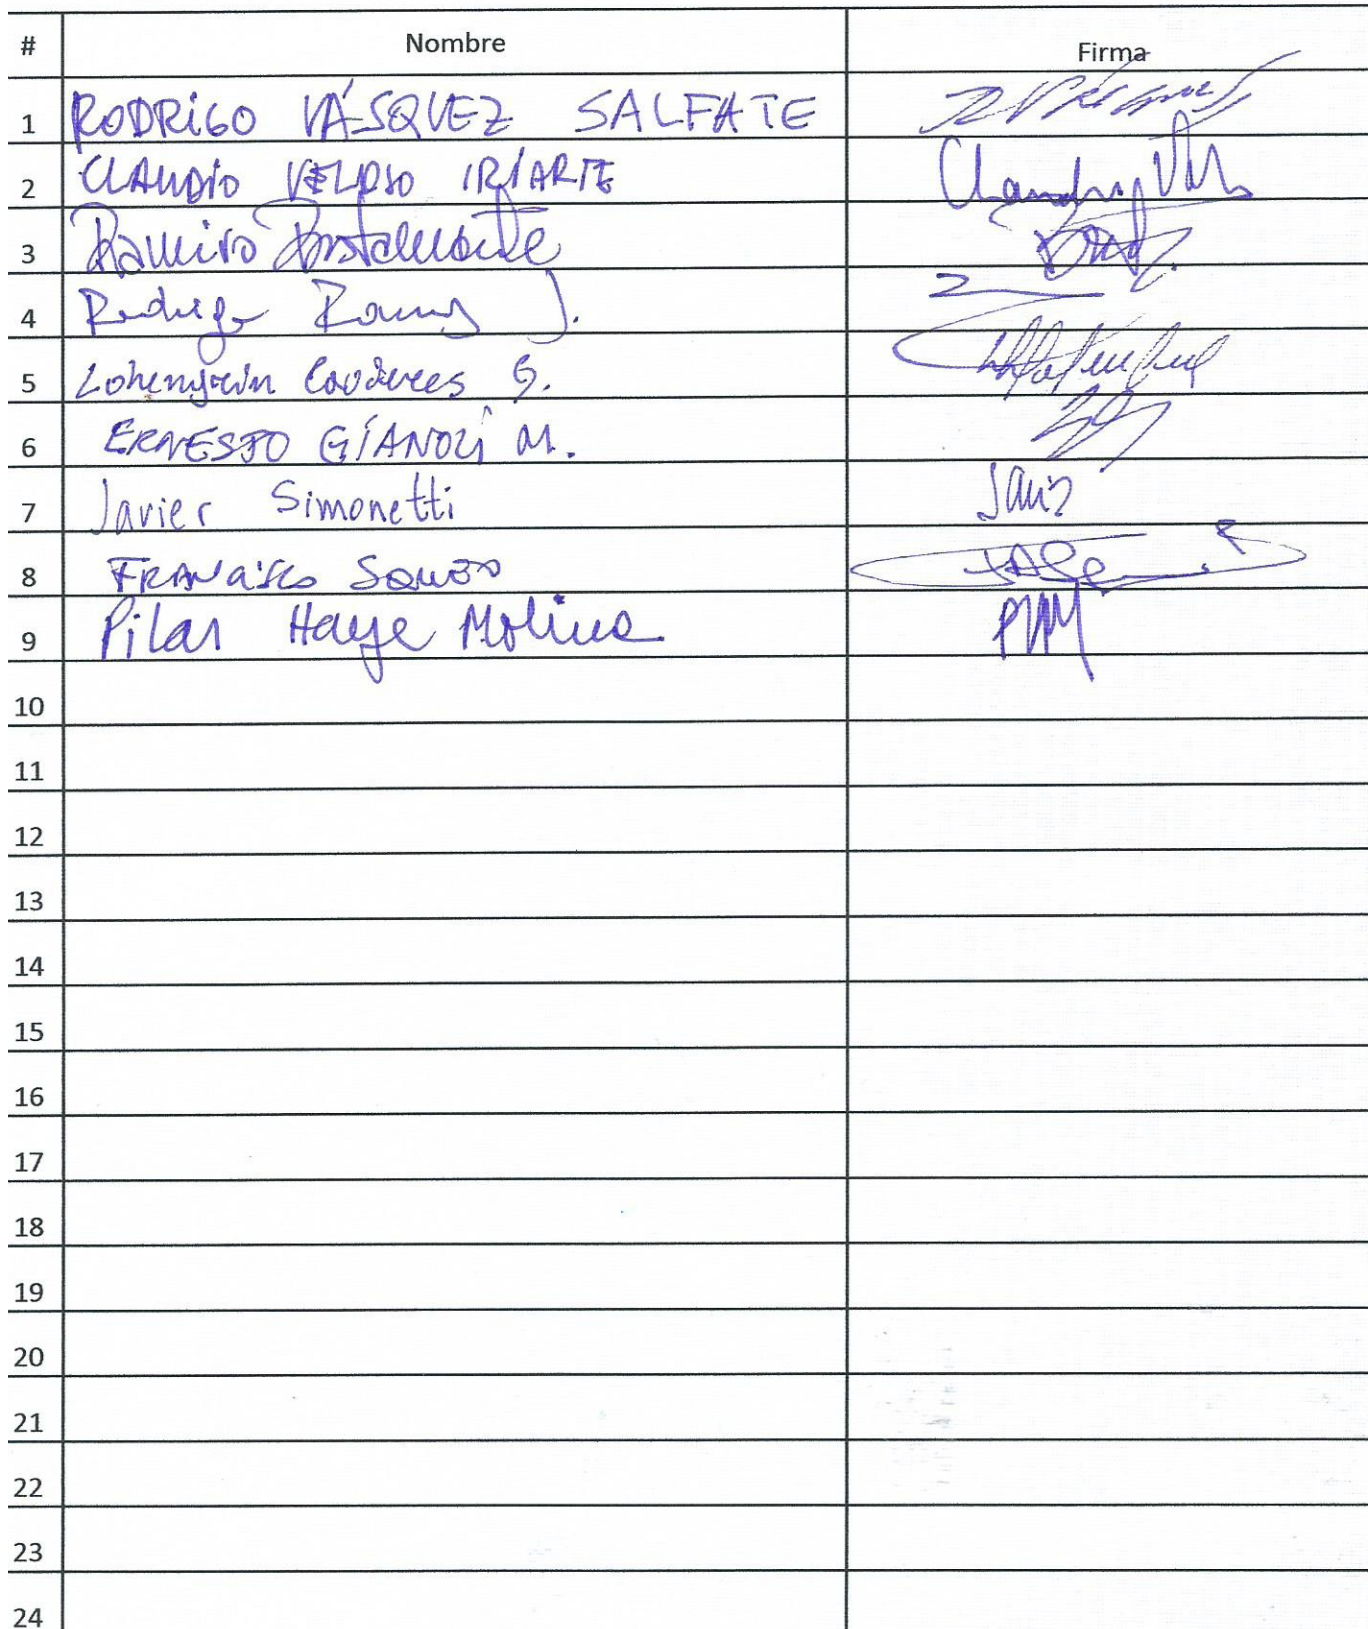 # Nombre Firma
1 RODRIGO VÁSQUEZ SALFATE
2 CLAUDIO VELOSO IRIARTE
3 Ramiro Bustamante
4 Rodrigo Ramos J.
5 Lohengrin Cavieres G.
6 ERNESTO GIANOLI M.
7 Javier Simonetti Javi
8 FRANCISCO SQUEO
9 Pilar Haye Molina PHM
10
11
12
13
14
15
16
17
18
19
20
21
22
23
24